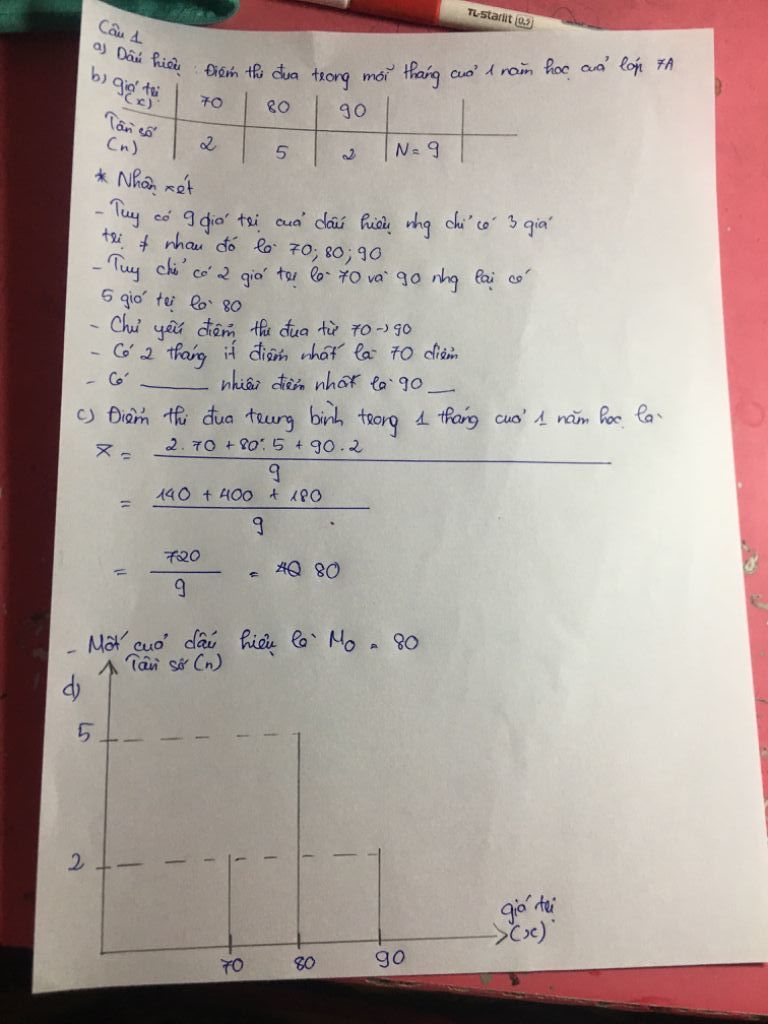 TL-starlit 0.3
Câu 1
a) Dấu hiệu : Điểm thi đua trong mỗi tháng của 1 năm học của lớp 7A
b) giá trị (x) 70 80 90
Tần số (n) 2 5 2 N = 9
* Nhận xét
- Tuy có 9 giá trị của dấu hiệu nhg chỉ có 3 giá
trị ≠ nhau đó là 70; 80; 90
- Tuy chỉ có 2 giá trị là 70 và 90 nhg lại có
5 giá trị là 80
- Chủ yếu điểm thi đua từ 70 -> 90
- Có 2 tháng ít điểm nhất là 70 điểm
- Có ____ nhiều điểm nhất là 90 __
c) Điểm thi đua trung bình trong 1 tháng của 1 năm học là
X = 2.70 + 80.5 + 90.2 / 9
= 140 + 400 + 180 / 9
= 720 / 9 = 80
- Mốt của dấu hiệu là M0 = 80
d) Tần số (n)
5
2
giá trị (x)
70 80 90